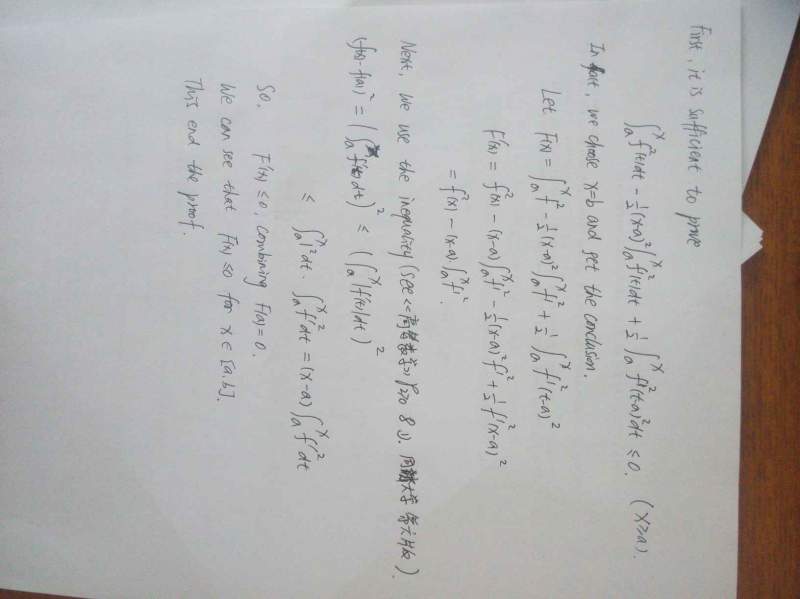 First, it is sufficient to prove
∫ₐˣ f²(t)dt - ½(x-a)² ∫ₐˣ f'²(t)dt + ½ ∫ₐˣ f'²(t-a)² dt ≤ 0. (x≥a).
In fact, we choose x=b and get the conclusion.
Let F(x) = ∫ₐˣ f² - ½(x-a)² ∫ₐˣ f'² + ½ ∫ₐˣ f'²(t-a)²
F'(x) = f²(x) - (x-a) ∫ₐˣ f'² - ½(x-a)² f'² + ½ f'²(x-a)²
= f²(x) - (x-a) ∫ₐˣ f'².
Next, we use the inequality (see <<高等数学>> P270 8 (1). 同济大学 第六版).
(f(x)-f(a))² = (∫ₐˣ f'(t)dt)² ≤ (∫ₐˣ |f'(t)|dt)²
≤ ∫ₐˣ 1² dt · ∫ₐˣ f'² dt = (x-a) ∫ₐˣ f'² dt
So. F'(x) ≤ 0, combining F(a)=0.
We can see that F(x) ≤0 for x ∈ [a,b].
This end the proof.